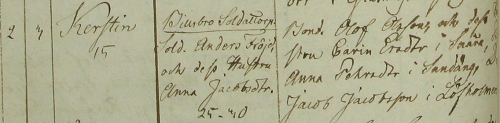 2 " Kerstin
15
Biurbro Soldattorp.
Sold. Anders Fröjd,
och dess Hustru
Anna Jacobsdtr.
25-40
Bond. Olof Olsson och dess
stru Carin Ersdtr i
Anna Pehrsdtr i Sandäng,
Jacob Jacobsson i Löfholmen